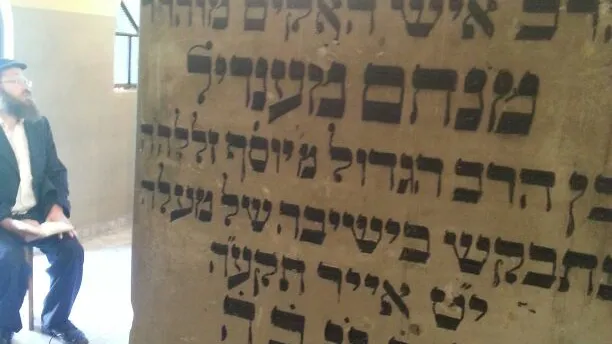 הרב איש האקים
מנחם מענדיל
בן הרב הגדול מ'יוסף זללהה
נתבקש בישיבה של מעלה
י"ט אייר תקע"ה